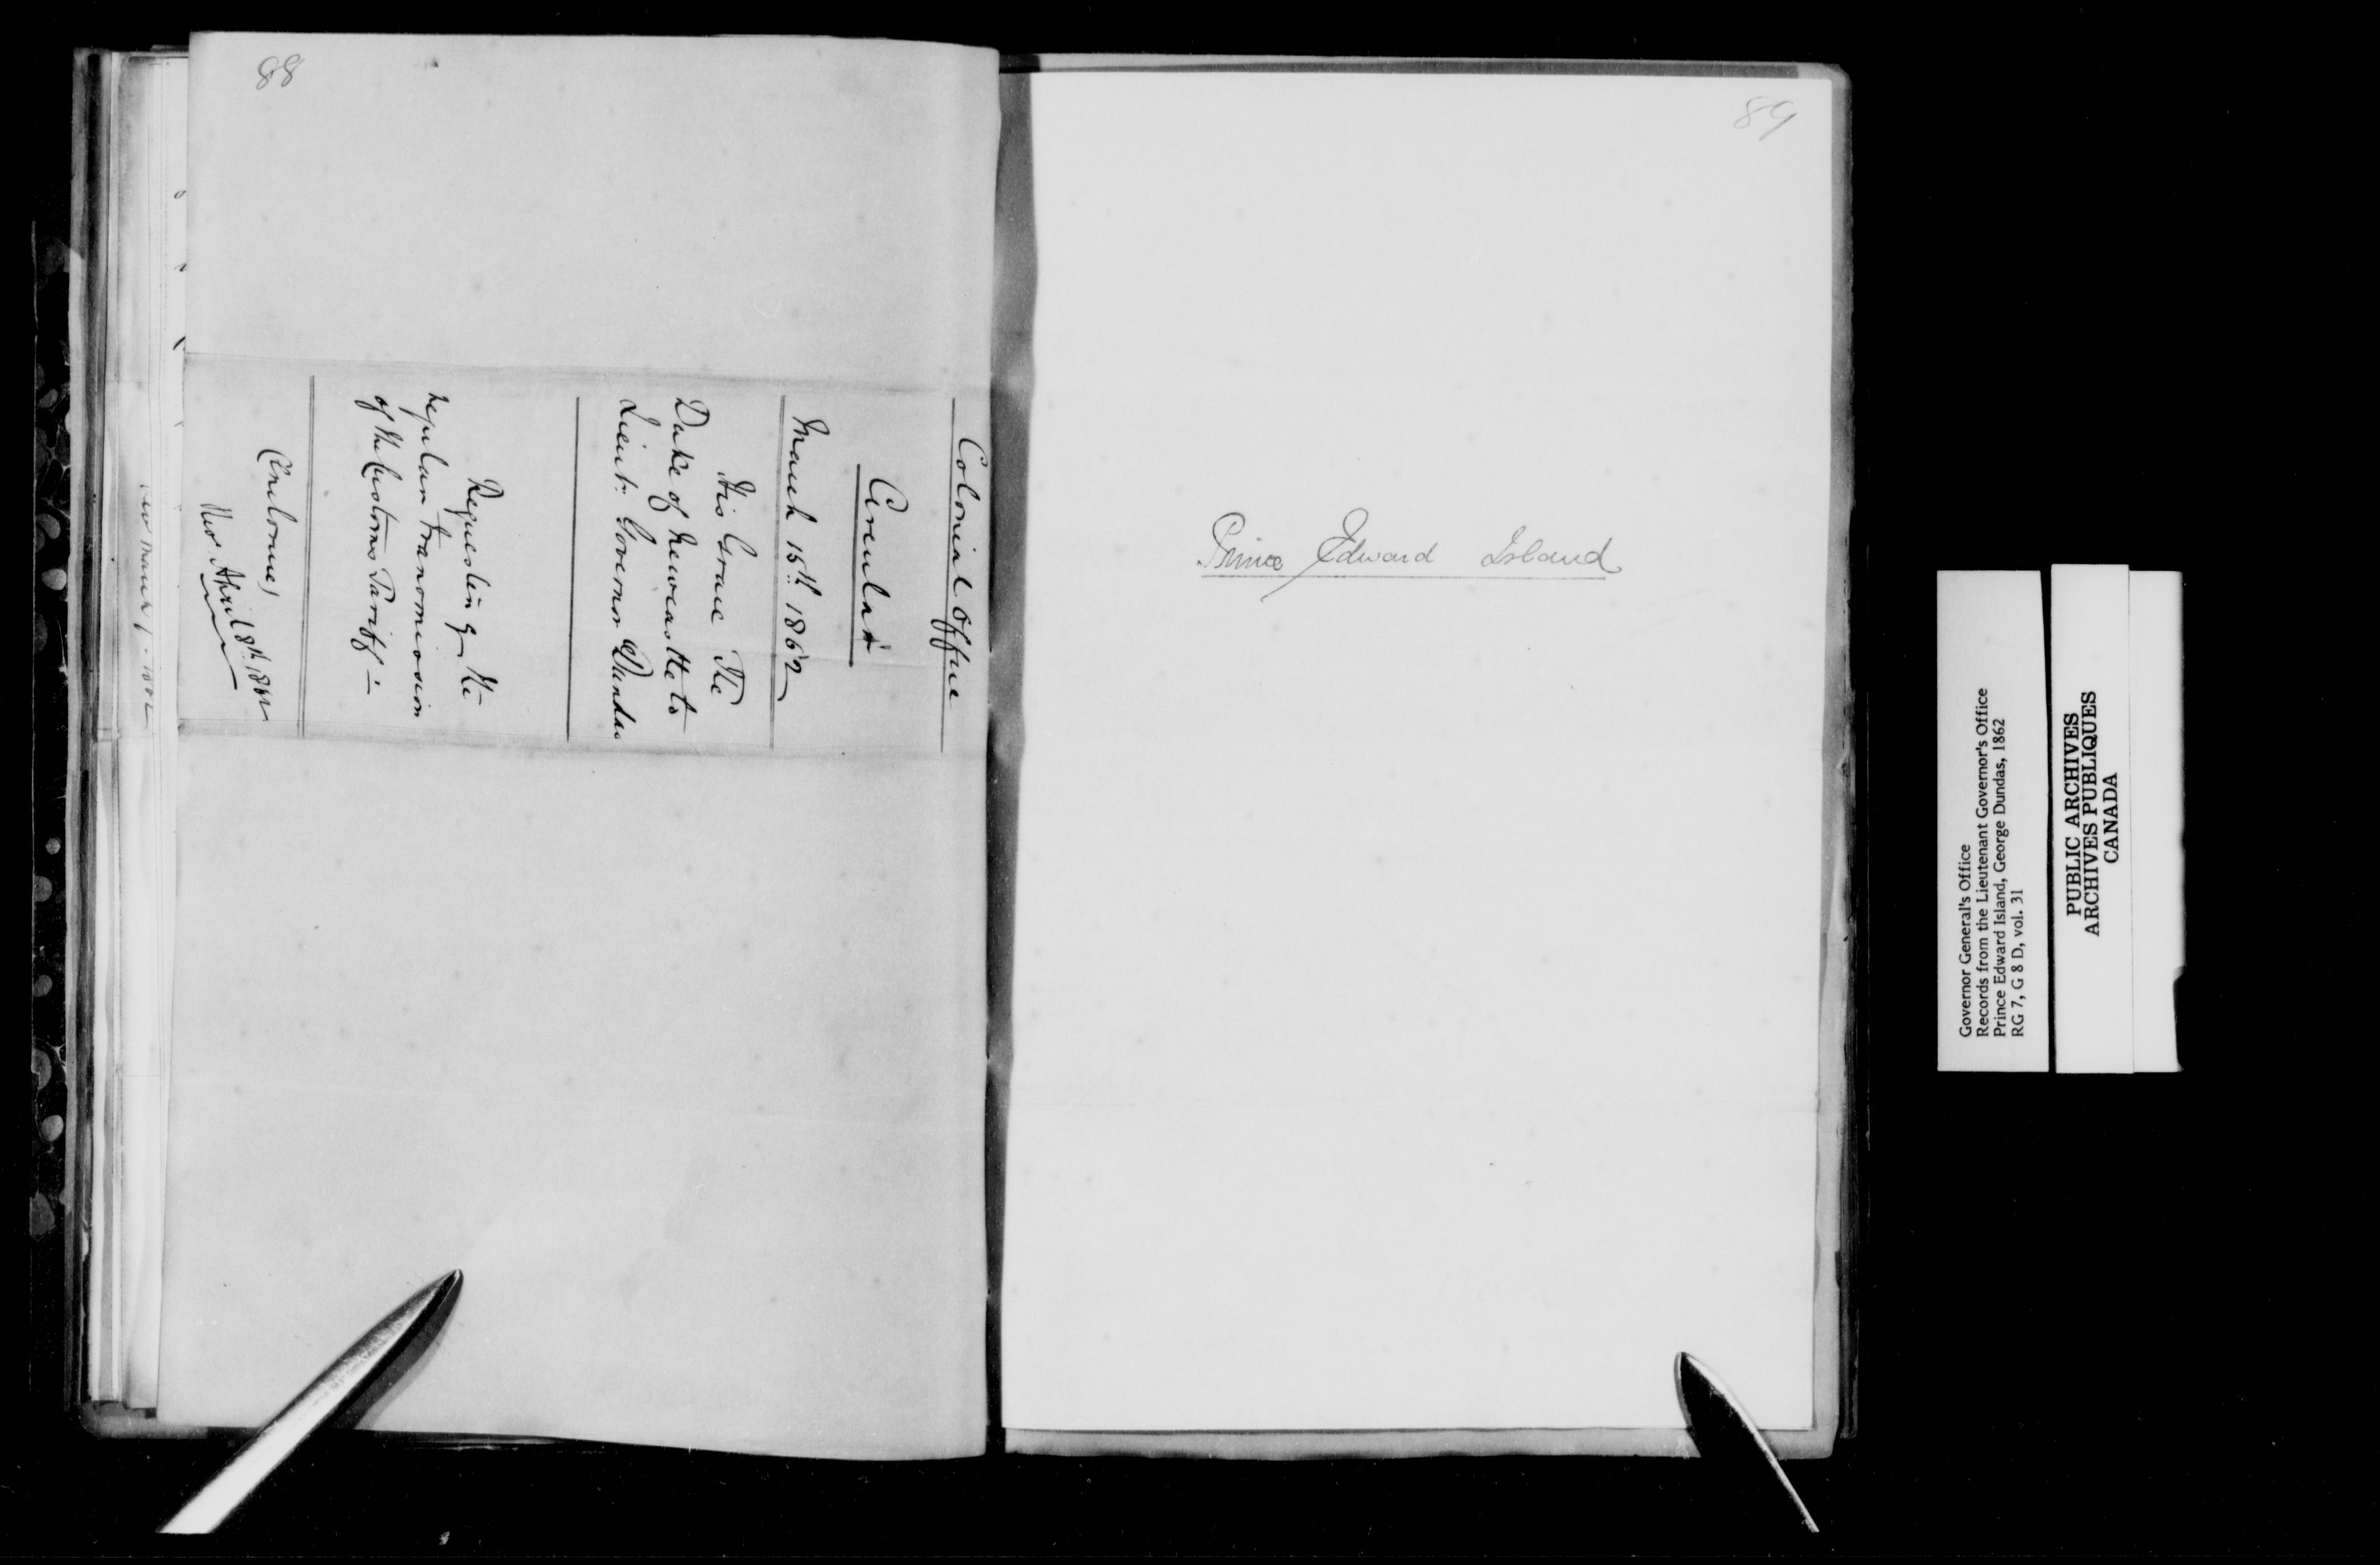 88
Colonial Office
Circular
March 15th. 1862
His Grace The
Duke of Newcastle to
Lieut: Governor Dundas
Requesting the
regular transmission
of the Customs Tariff :-
Enclosure,
April 8th 1862
89
Prince Edward Island
Governor General's Office
Records from the Lieutenant Governor's Office
Prince Edward Island, George Dundas, 1862
RG 7, G 8 D, vol. 31
PUBLIC ARCHIVES
ARCHIVES PUBLIQUES
CANADA